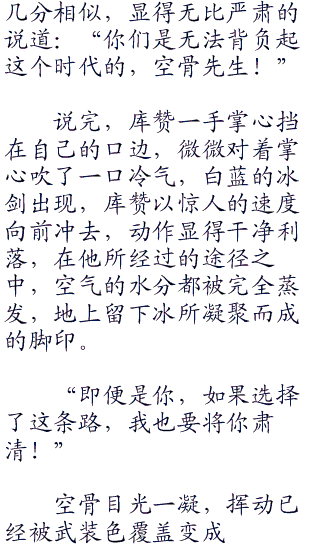 几分相似，显得无比严肃的
说道：“你们是无法背负起
这个时代的，空骨先生！”
说完，库赞一手掌心挡
在自己的口边，微微对着掌
心吹了一口冷气，白蓝的冰
剑出现，库赞以惊人的速度
向前冲去，动作显得干净利
落，在他所经过的途径之
中，空气的水分都被完全蒸
发，地上留下冰所凝聚而成
的脚印。
“即便是你，如果选择
了这条路，我也要将你肃
清！”
空骨目光一凝，挥动已
经被武装色覆盖变成